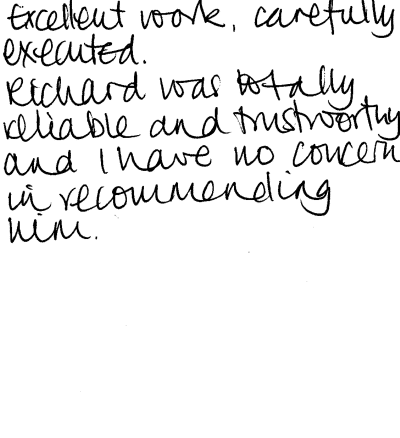 Excellent work, carefully
executed.
Richard was totally
reliable and trustworthy
and I have no concern
in recommending
him.